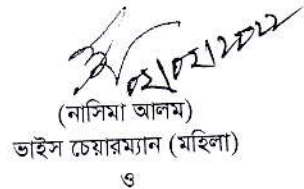 ০২/০২/২০২২
(নাসিমা আলম)
ভাইস চেয়ারম্যান (মহিলা)
ও